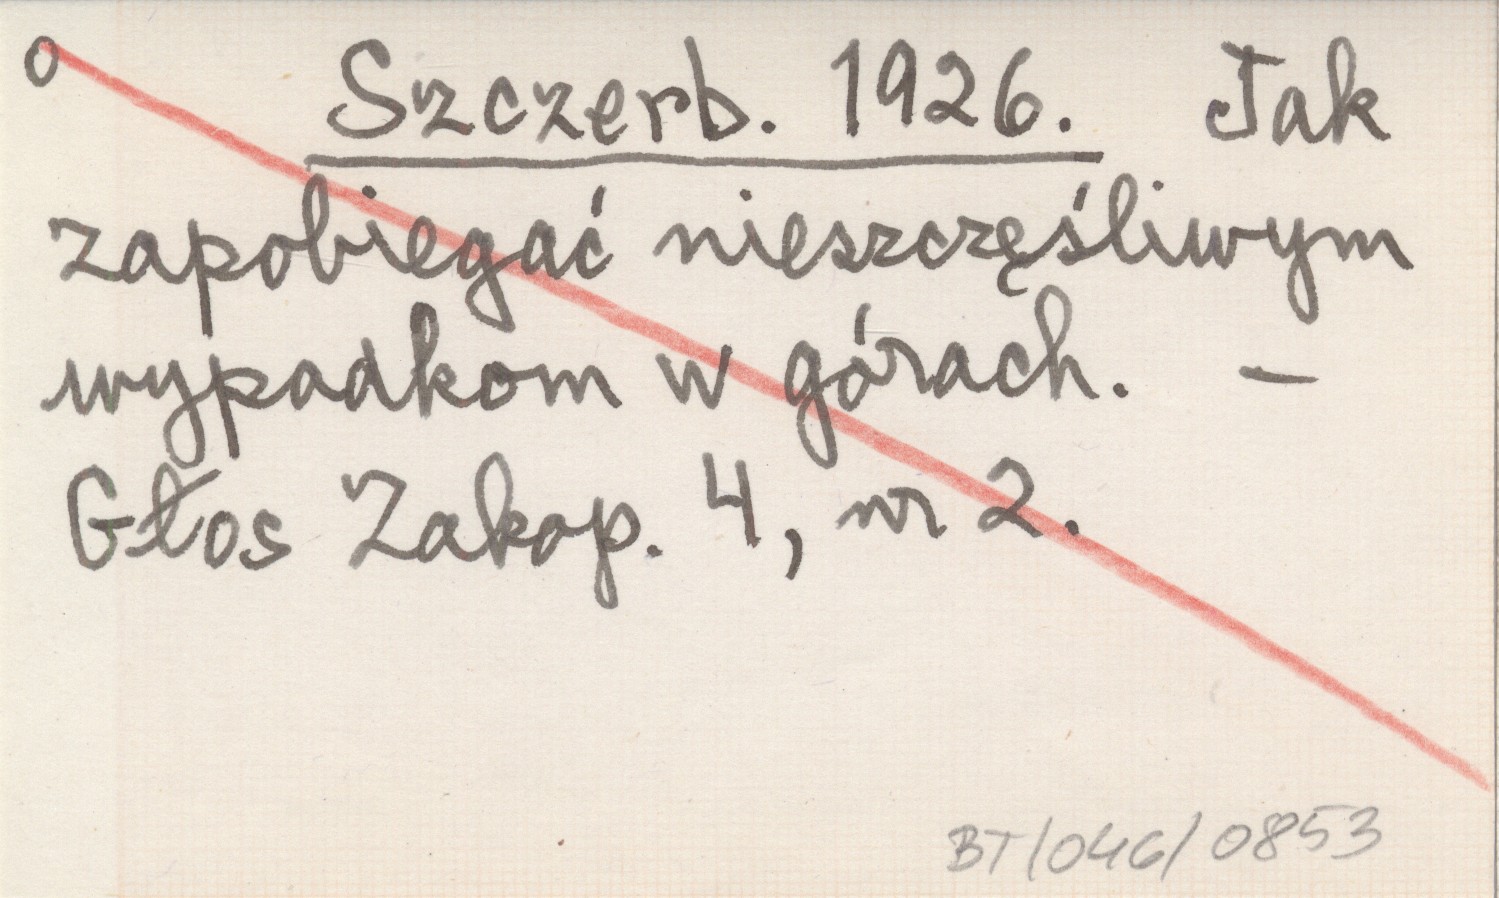 o Szczerb. 1926. Jak
zapobiegać nieszczęśliwym
wypadkom w górach. –
Głos Zakop. 4, nr 2.
BT/046/0853